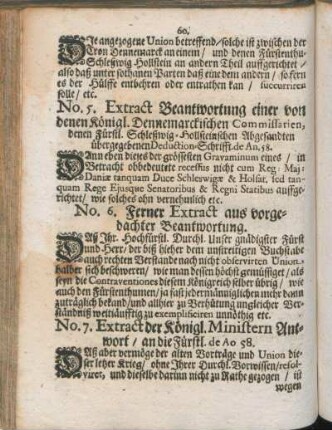 60.
Die angezogene Union betreffend / solche ist zwischen der
Cron Dennemarck an einem / und denen Fürstenthu-
Schleßwig Hollstein an andern Theil auffgerichtet /
also daß unter sothanen Parten daß eine dem andern / so fern
es der Hülffe entbehren oder entrathen kan / succurriren
solle / etc.
No. 5. Extract Beantwortung einer von
denen Königl. Dennemarckischen Commissarien,
denen Fürstl. Schleßwig-Hollsteinischen Abgesandten
übergegebenen Deduction-Schrifft. de An. 58.
Dann eben dieses der grössesten Gravaminum eines / in
Betracht obbedeutete recessus nicht cum Reg. Maj.
Daniæ tanquam Duce Schleswigæ & Holsat. sed tan-
quam Rege Ejusque Senatoribus & Regni Statibus auffge-
richtet / wie solches ohn vernehmlich etc.
No. 6. Ferner Extract aus vorge-
dachter Beantwortung.
Daß Ihr. Hochfürstl. Durchl. Unser gnädigster Fürst
und Herr / der biß hieher dem unstreitigen Buchstabe
auch rechten Verstande nach nicht observirten Union-
halber sich beschweren / wie man dessen höchst gemüssiget / als
seyn die Contraventiones diesem Königreich selber übrig / wie
auch den Fürstenthumen / ja fast jedermänniglichen mehr dann
zuträglich bekand / und allhier zu Verhütung ungleicher Ver-
ständniß weitläufftig zu exemplificiren unnöthig etc.
No. 7. Extract der Königl. Ministern Ant-
wort / an die Fürstl. de Ao 58.
Daß aber vermöge der alten Vorträge und Union die-
ser letzer Krieg / ohne Ihrer Durchl. Vorwissen / resol-
viret, und dieselbe darinn nicht zu Rathe gezogen / ist
wegen